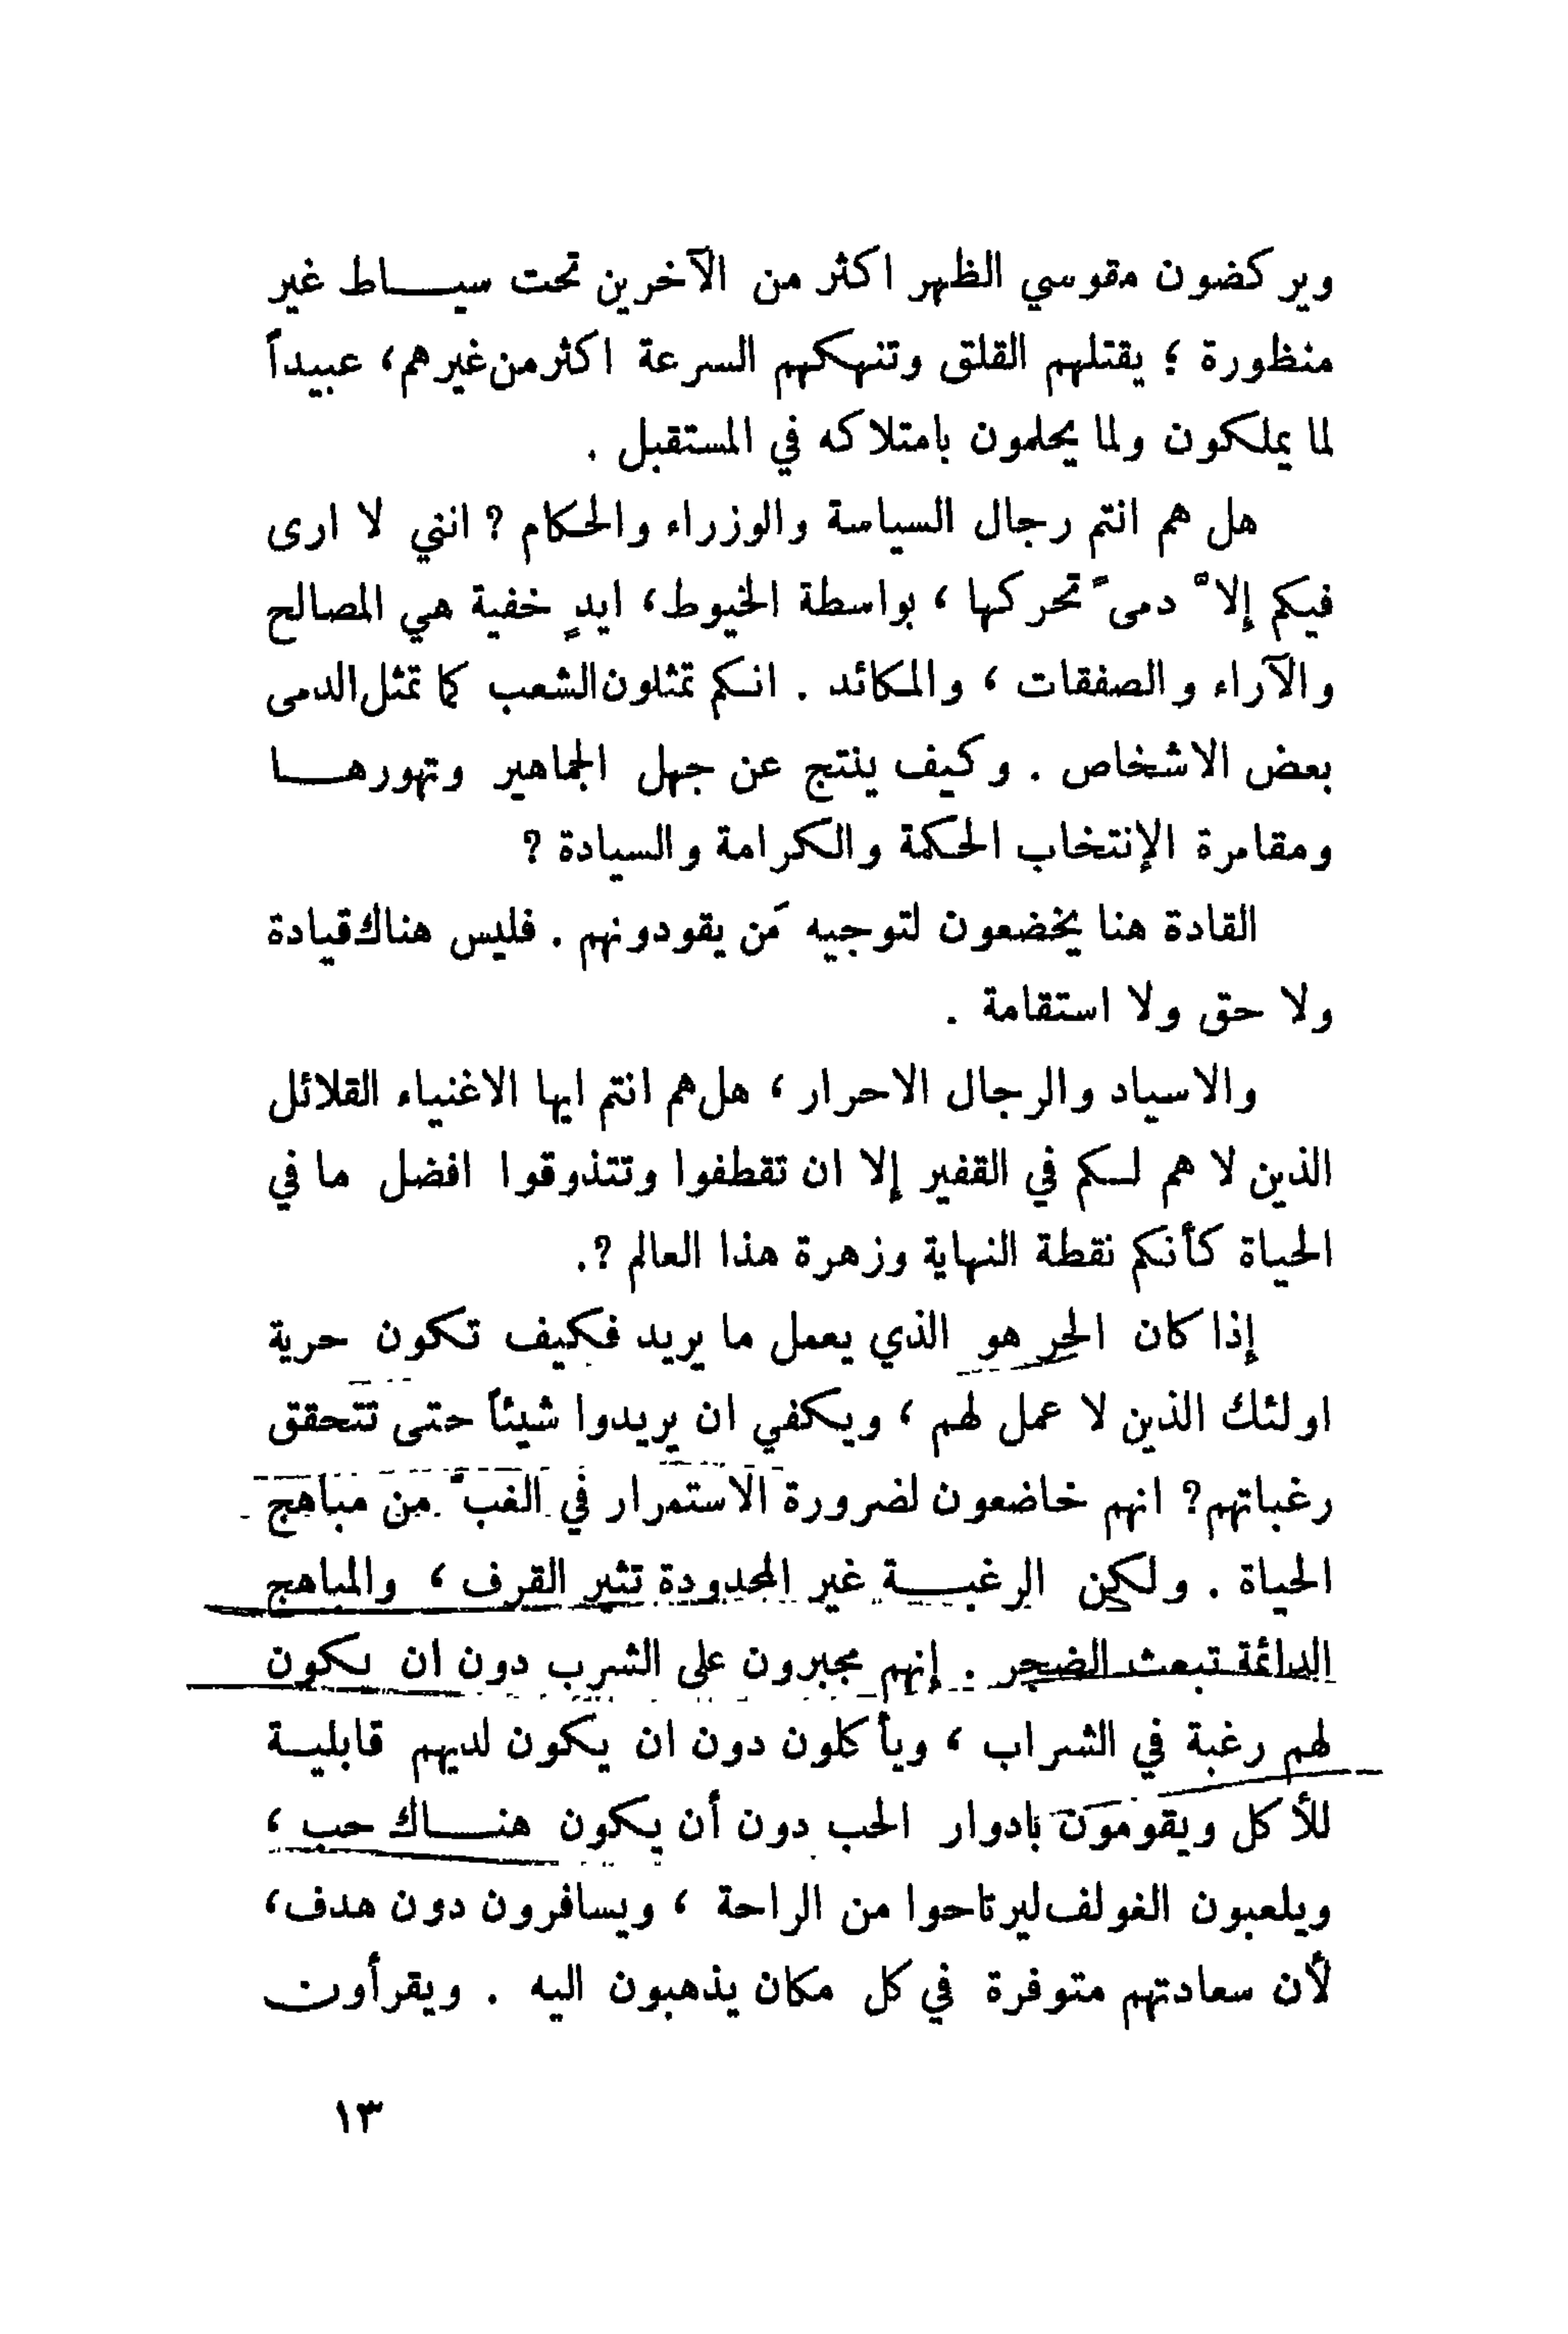 ويركضون مقوسي الظهر اكثر من الآخرين تحت سيـــاط غير
منظورة ؛ يقتلهم القلق وتنهكهم السرعة اكثر من غيرهم ، عبيداً
لما يملكون ولما يحلمون بامتلاكه في المستقبل .
هل هم انتم رجال السياسة والوزراء والحكام ؟ انني لا ارى
فيكم إلاّ دمىً تحركها ، بواسطة الخيوط ، ايدٍ خفية هي المصالح
والآراء والصفقات ، والمكائد . انكم تمثلون الشعب كما تمثل الدمى
بعض الاشخاص . وكيف ينتج عن جهل الجماهير وتهورهـــا
ومقامرة الإنتخاب الحكمة والكرامة والسيادة ؟
القادة هنا يخضعون لتوجيه مَن يقودونهم . فليس هناك قيادة
ولا حق ولا استقامة .
والاسياد والرجال الاحرار ، هل هم انتم ايها الاغنياء القلائل
الذين لا هم لــكم في القفير إلا ان تقطفوا وتتذوقوا افضل ما في
الحياة كأنكم نقطة النهاية وزهرة هذا العالم ؟.
إذا كان الحر هو الذي يعمل ما يريد فكيف تكون حرية
اولئك الذين لا عمل لهم ، ويكفي ان يريدوا شيئاً حتى تتحقق
رغباتهم؟ انهم خاضعون لضرورة الاستمرار في الغبّ من مباهج
الحياة . ولكن الرغبـــة غير المحدودة تثير القرف ، والمباهج
الدائمة تبعث الضجر . إنهم مجبرون على الشرب دون ان يكون
لهم رغبة في الشراب ، ويأكلون دون ان يكون لديهم قابليـــة
للأكل ويقومون بادوار الحب دون أن يكون هنـــاك حب ،
ويلعبون الغولف ليرتاحوا من الراحة ، ويسافرون دون هدف ،
لأن سعادتهم متوفرة في كل مكان يذهبون اليه . ويقرأون
١٣